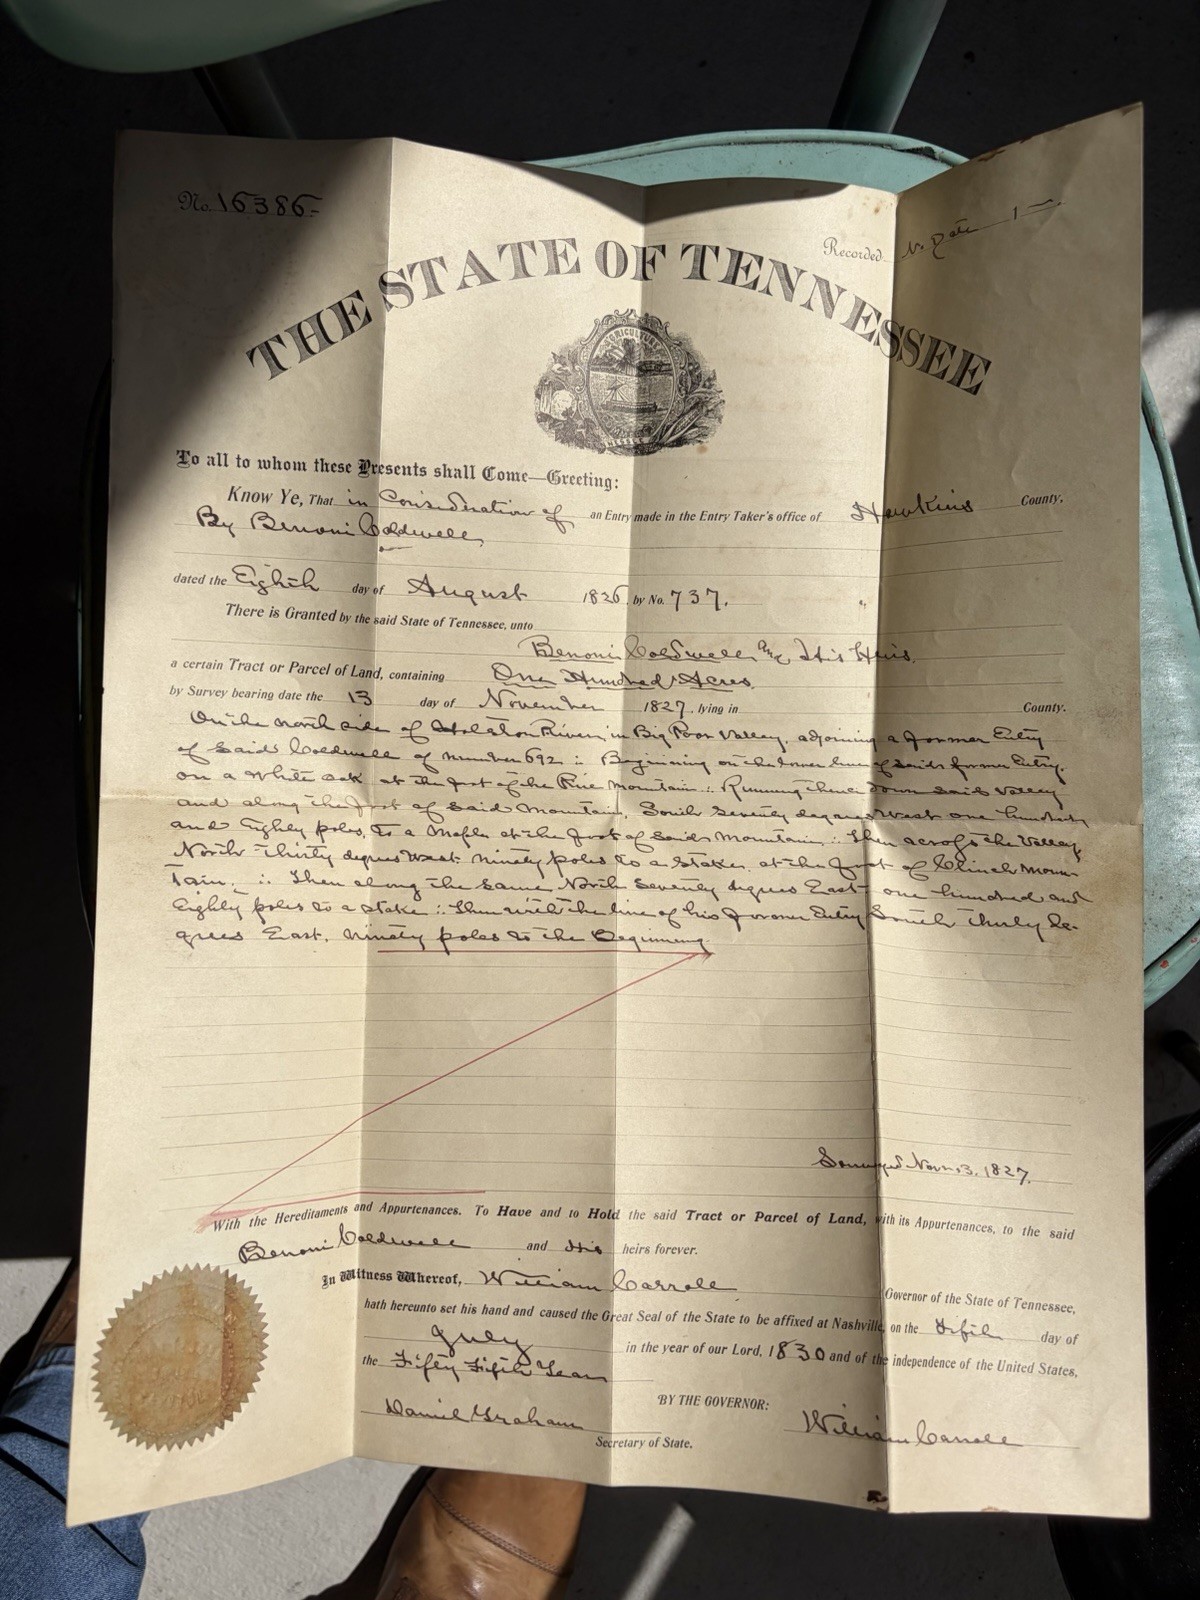 No. 16386-
Recorded No Date 1
THE STATE OF TENNESSEE
AGRICULTURE
COMMERCE
To all to whom these Presents shall Come—Greeting:
Know Ye, That in Consideration of an Entry made in the Entry Taker's office of Hawkins County.
By Benoni Coldwell,
dated the Eighth day of August 1826, by No. 737.
There is Granted by the said State of Tennessee, unto
Benoni Coldwell and His Heirs.
a certain Tract or Parcel of Land, containing One Hundred Acres,
by Survey bearing date the 13 day of November 1827, lying in County.
On the north side of Holston River, in Big Poor Valley, adjoining a former Entry
of said Coldwell of number 692 :. Beginning on the lower line of said former Entry,
on a White oak at the foot of the Pine Mountain :. Running thence down said Valley
and along the foot of said Mountain, South Seventy degrees West one hundred
and Eighty poles, to a Maple at the foot of said Mountain :. Then across the Valley,
North Thirty degrees West ninety poles to a Stake, at the foot of Clinch Moun-
tain, :. Then along the same North Seventy degrees East one hundred and
Eighty poles to a stake :. Then with the line of his former Entry South thirty de-
grees East, ninety poles to the Beginning.
Surveyed Nov. 13, 1827.
With the Hereditaments and Appurtenances. To Have and to Hold the said Tract or Parcel of Land, with its Appurtenances, to the said
Benoni Coldwell and His heirs forever.
In Witness Whereof, William Carroll Governor of the State of Tennessee,
hath hereunto set his hand and caused the Great Seal of the State to be affixed at Nashville, on the Fifth day of
July in the year of our Lord, 1830 and of the independence of the United States,
the Fifty Fifth Year
BY THE GOVERNOR:
Daniel Graham William Carroll
Secretary of State.